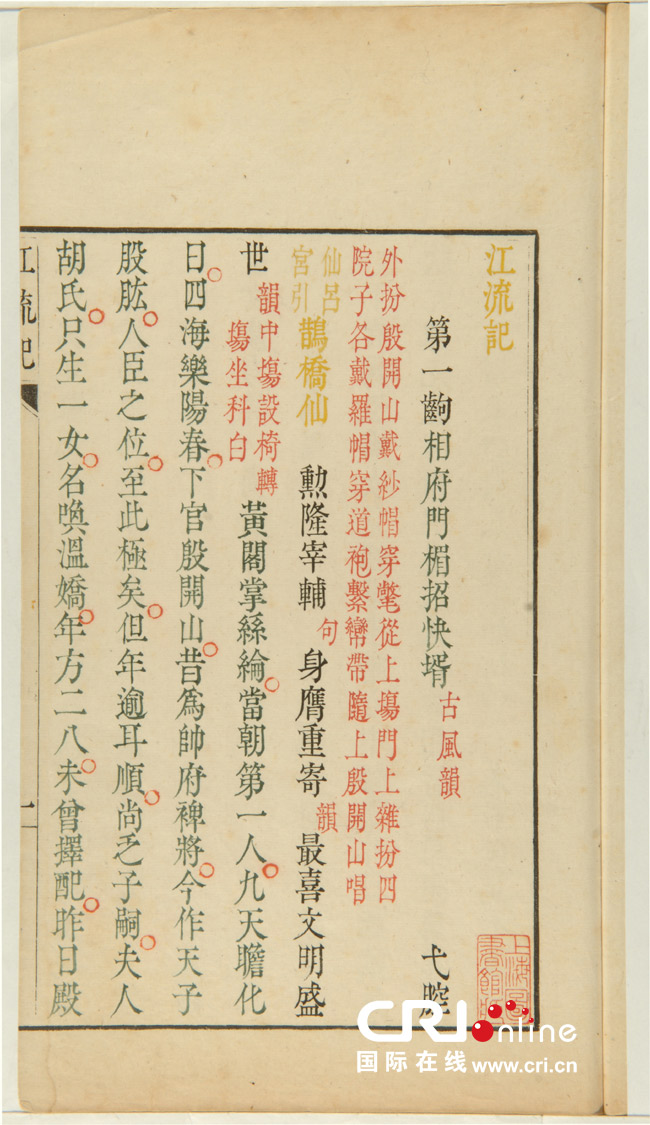 江流記
第一齣相府門楣招快壻 古風韻 弋腔
外扮殷開山戴紗帽穿氅從上場門上雜扮四
院子各戴羅帽穿道袍繫鸞帶隨上殷開山唱
仙呂
宮引 鵲橋仙 勲隆宰輔 句 身膺重寄 韻 最喜文明盛
世 韻 中場設椅轉
場坐科白 黃閣掌絲綸當朝第一人九天瞻化
日四海樂陽春下官殷開山昔爲帥府裨將今作天子
股肱人臣之位至此極矣但年逾耳順尚乏子嗣夫人
胡氏只生一女名喚溫嬌年方二八未曾擇配昨日殿
江流記
一
上海圖
書館
CRIonline
国际在线 www.cri.cn